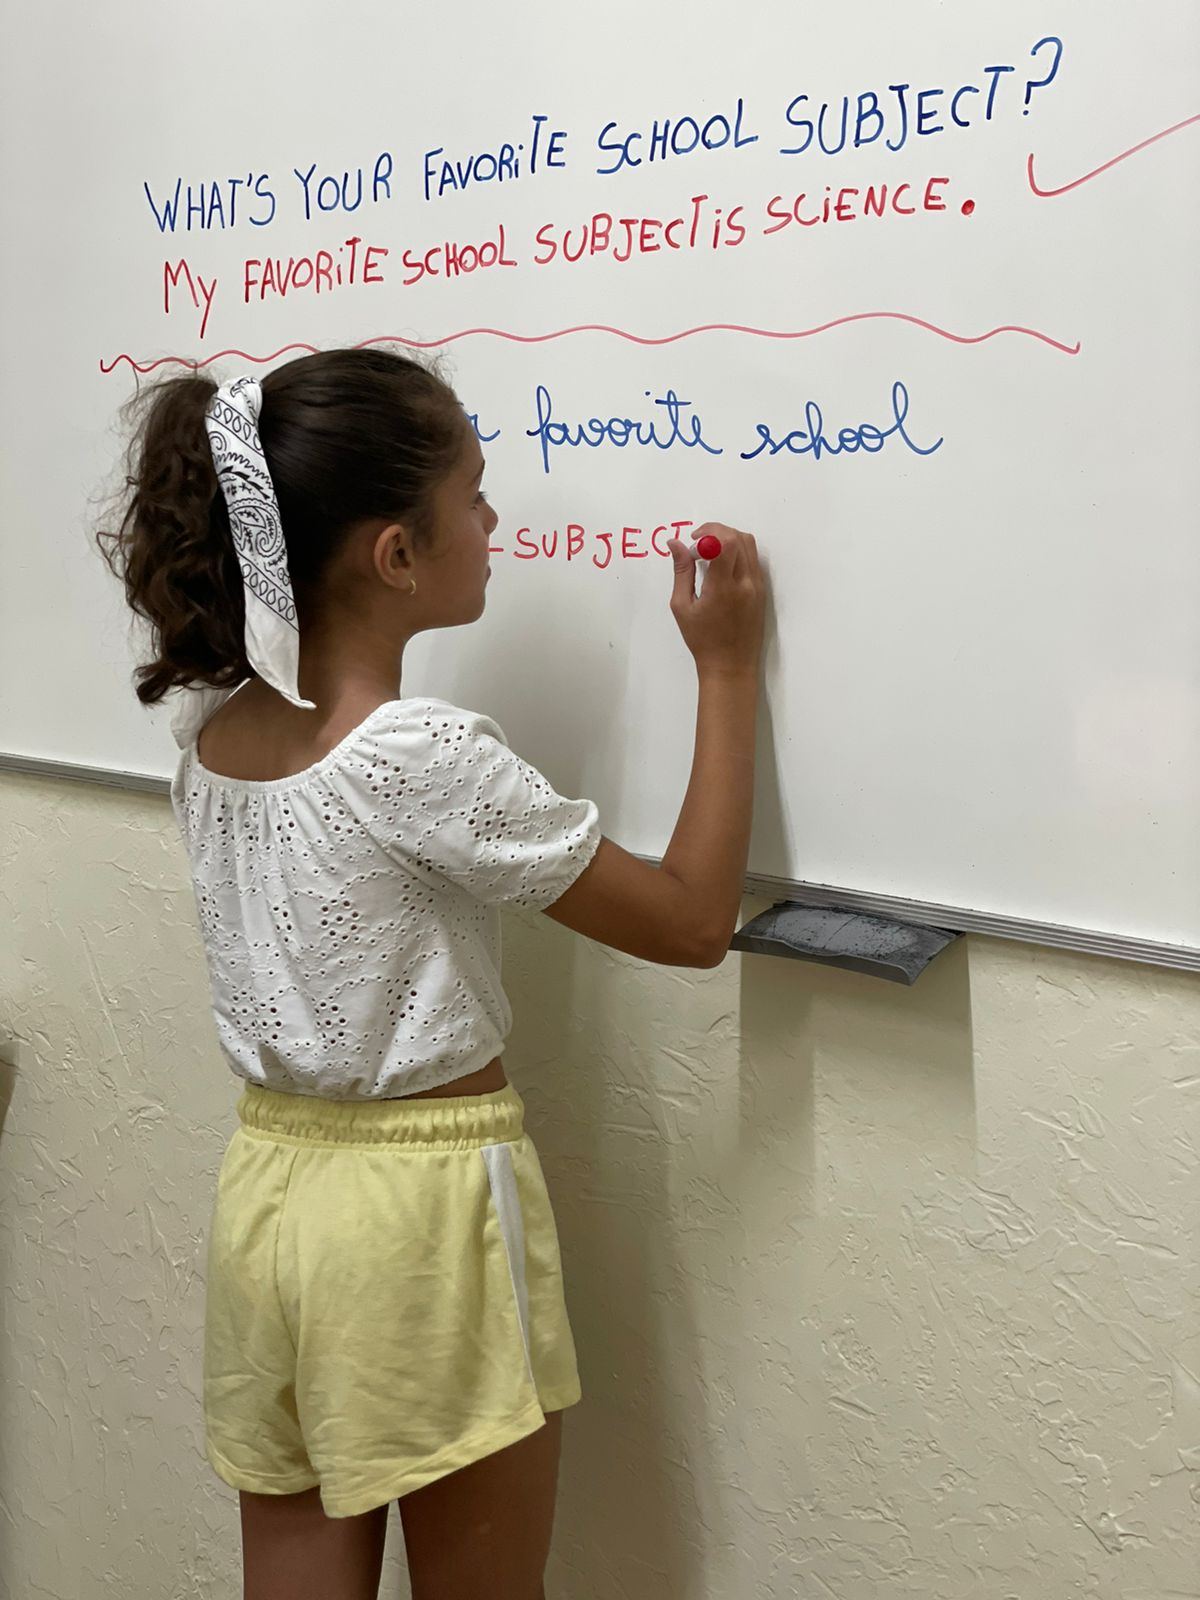 WHAT'S YOUR FAVORiTE SCHOOL SUBJECT?
My FAVORiTE SCHOOL SUBJECT iS SCiENCE.
favorite school
SUBJECT